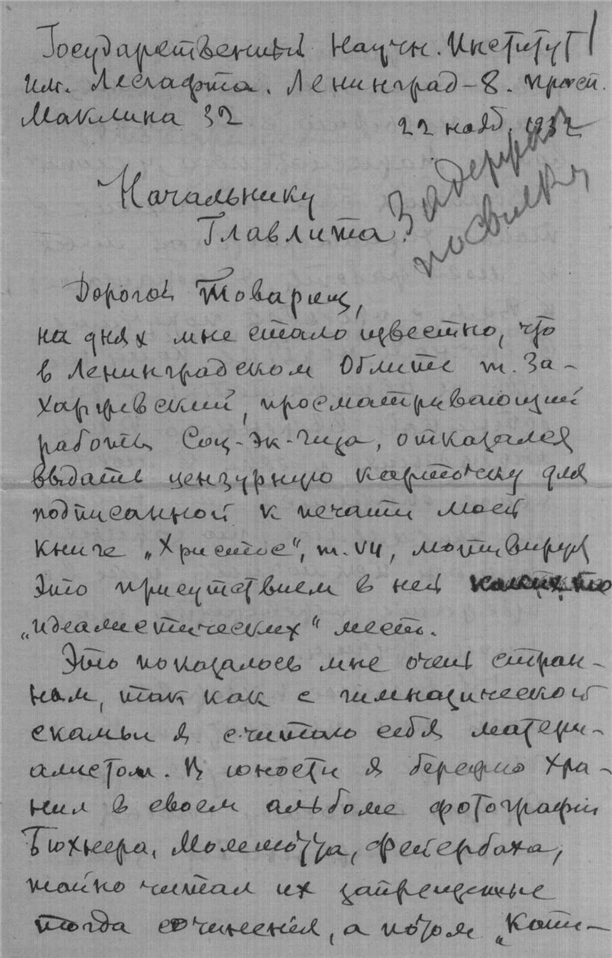 Государственный Научн. Институт
им. Лесгафта. Ленинград-8. просп.
Маклина 32
22 нояб. 1932
Задержка
посылки
Начальнику
Главлита.
Дорогой Товарищ,
на днях мне стало известно, что
в Ленинградском Облите т. За-
харжевский, просматривающий
работы Соц-Эк-Гиза, отказался
выдать цензурную карточку для
подписанной к печати моей
книге „Христос", т. VII, мотивируя
это присутствием в ней каких то
„идеалистических" мест.
Это показалось мне очень стран-
ным, так как с гимназической
скамьи я считаю себя матери-
алистом. В юности я бережно хра-
нил в своем альбоме фотографии
Бюхнера, Молешотта, Фейербаха,
тайно читал их запрещенные
тогда сочинения, а потом „Капи-